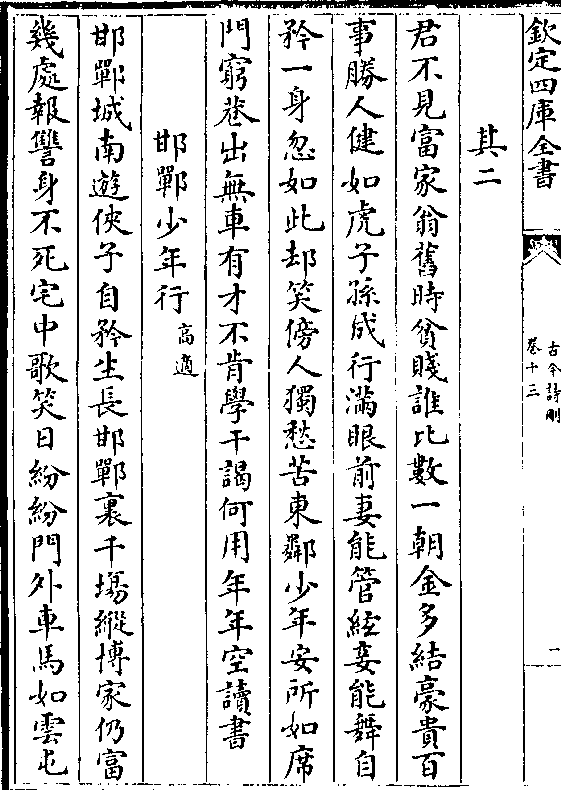 欽定四庫全書
古今詩刪
卷十三
二
其二
君不見富家翁舊時貧賤誰比數一朝金多結豪貴百
事勝人健如虎子孫成行滿眼前妻能管絃妾能舞自
矜一身忽如此却笑傍人獨愁苦東鄰少年安所如席
門窮巷出無車有才不肯學干謁何用年年空讀書
邯鄲少年行 高適
邯鄲城南遊俠子自矜生長邯鄲裏千場縱博家仍富
幾處報讐身不死宅中歌笑日紛紛門外車馬如雲屯